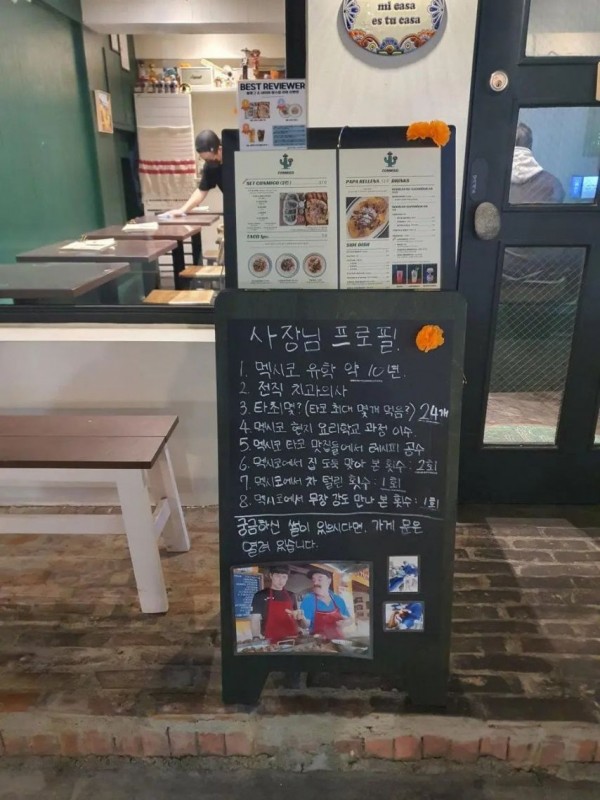 mi casa
es tu casa
BEST REVIEWER
SET CUPAMIGO
TACO 1pc.
PAPA RELLENA
DRINKS
SIDE DISH
사장님 프로필!
1. 멕시코 유학 약 10년.
2. 전직 치과의사
3. 타최몇? (타코 최대 몇개 먹음?) 24개
4. 멕시코 현지 요리학교 과정 이수.
5. 멕시코 타코 맛집들에서 레시피 공수
6. 멕시코에서 집 도둑 맞아 본 횟수 : 2회
7. 멕시코에서 차 털린 횟수 : 1회
8. 멕시코에서 무장 강도 만나 본 횟수 : 1회
궁금하신 썰이 있으시다면, 가게 문은
열려 있습니다.